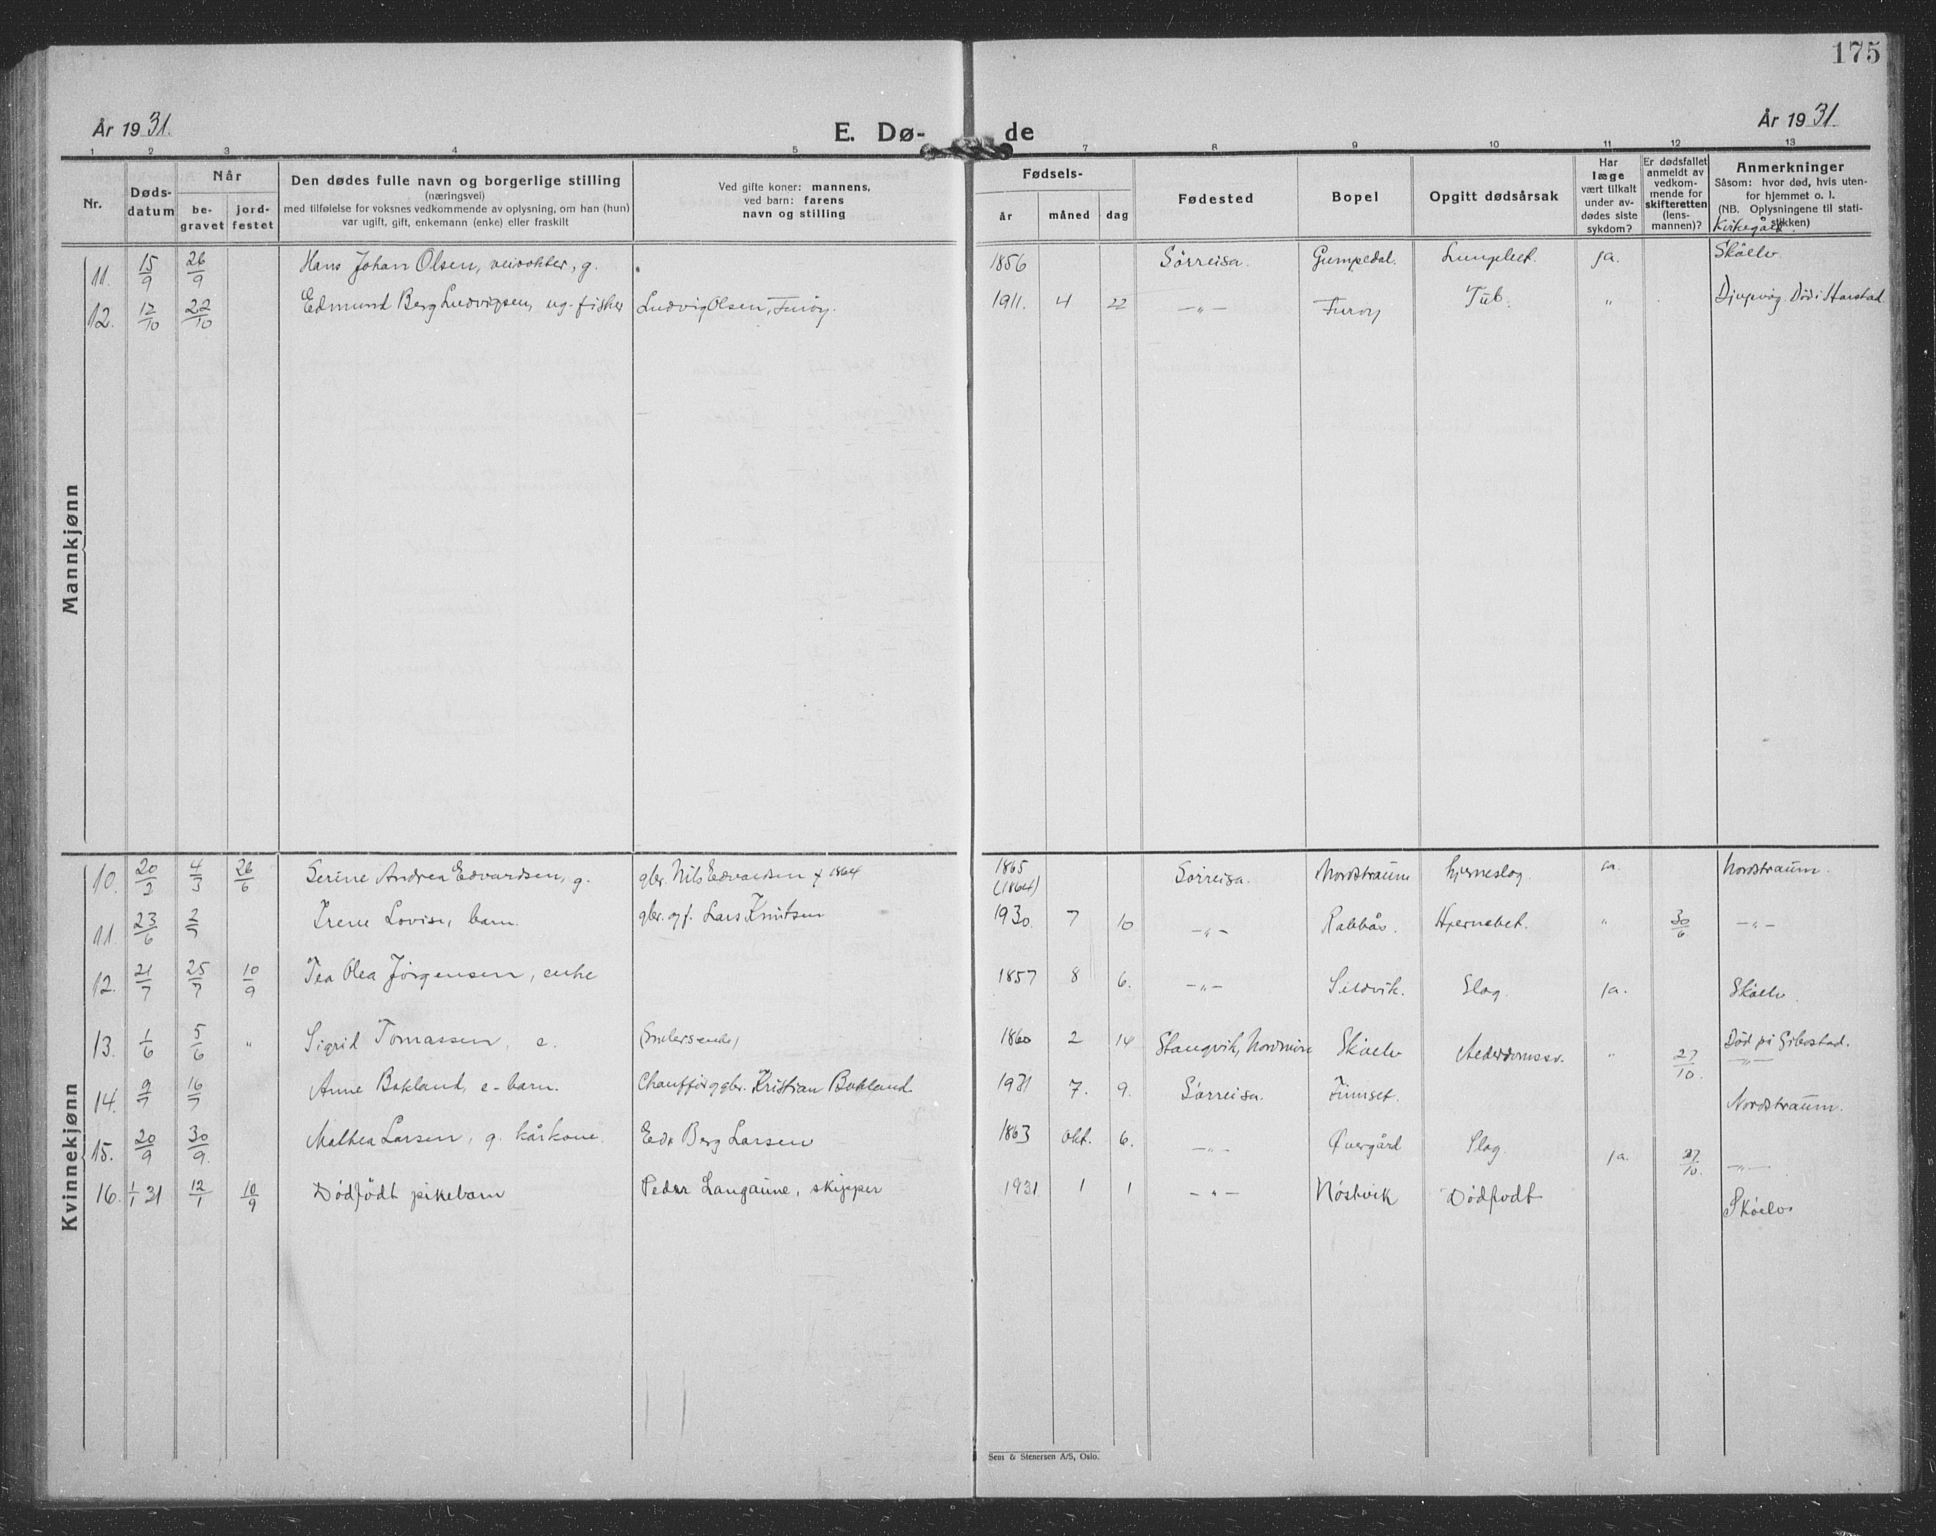 175
År 1931. E. Dø- de År 1931.
1 2 3 4 5 7 8 9 10 11 12 13
Nr.
Døds-
datum
Når
be-
gravet
jord-
festet
Den dødes fulle navn og borgerlige stilling
(næringsvei)
med tilføielse for voksnes vedkommende av oplysning, om han (hun)
var ugift, gift, enkemann (enke) eller fraskilt
Ved gifte koner: mannens,
ved barn: farens
navn og stilling
Fødsels-
år måned dag
Fødested
Bopel
Opgitt dødsårsak
Har
læge
vært tilkalt
under av-
dødes siste
sykdom?
Er dødsfallet
anmeldt av
vedkom-
mende for
skifteretten
(lens-
mannen)?
Anmerkninger
Såsom: hvor død, hvis uten-
for hjemmet o. l.
(NB. Oplysningene til stati-
stikken)
Kirkegård
Mannkjønn
11. 15/9 26/9 Hans Johan Olsen, veivokter, g. 1856 Sørreisa. Gumpedal. Lungebet. ja. Skøelv
12. 12/10 22/10 Edmund Berg Ludvigsen, ug. fisker Ludvig Olsen, Furøy. 1911. 4 22 —"— Furøy Tub. " Djupvåg. Død i Harstad
Kvinnekjønn
10. 20/3 4/3 26/6 Serine Andrea Edvardsen, g. gbr. Nils Edvardsen f 1864 1865 (1864) Sørreisa. Nordstraum Hjerneslag. ja. Nordstraum.
11. 23/6 2/7 Irene Lovise, barn. gbr. og f. Lars Knutsen 1930. 7 10 —"— Rabbås. Hjernebet. " 30/6 —"—
12. 21/7 25/7 10/9 Tea Olea Jørgensen, enke 1857 8 6. —"— Sildvik. Slag. ja. Skøelv.
13. 1/6 5/6 " Sigrid Tomassen, e. 1860 2 14 Stangvik, Nordmøre Skøelv Alderdomssv. " 27/10 Død på Gibostad.
—"—
14. 9/7 16/7 Anne Bokland, e-barn. Chauffør og gbr. Kristian Bokland. 1931 7. 9. Sørreisa. Finnset. Nordstraum.
15. 20/9 30/9. Malhea Larsen, g. kårkone. Edv Berg Larsen 1863 okt. 6. —"— Øvergård Slag. ja. 27/10. —"—
16. 1/1 31 12/1 10/9 Dødfødt pikebarn Peder Langaune, skipper 1931 1 1 —"— Nøstvik Dødfødt Skøelv
Sem & Stenersen A/S, Oslo.